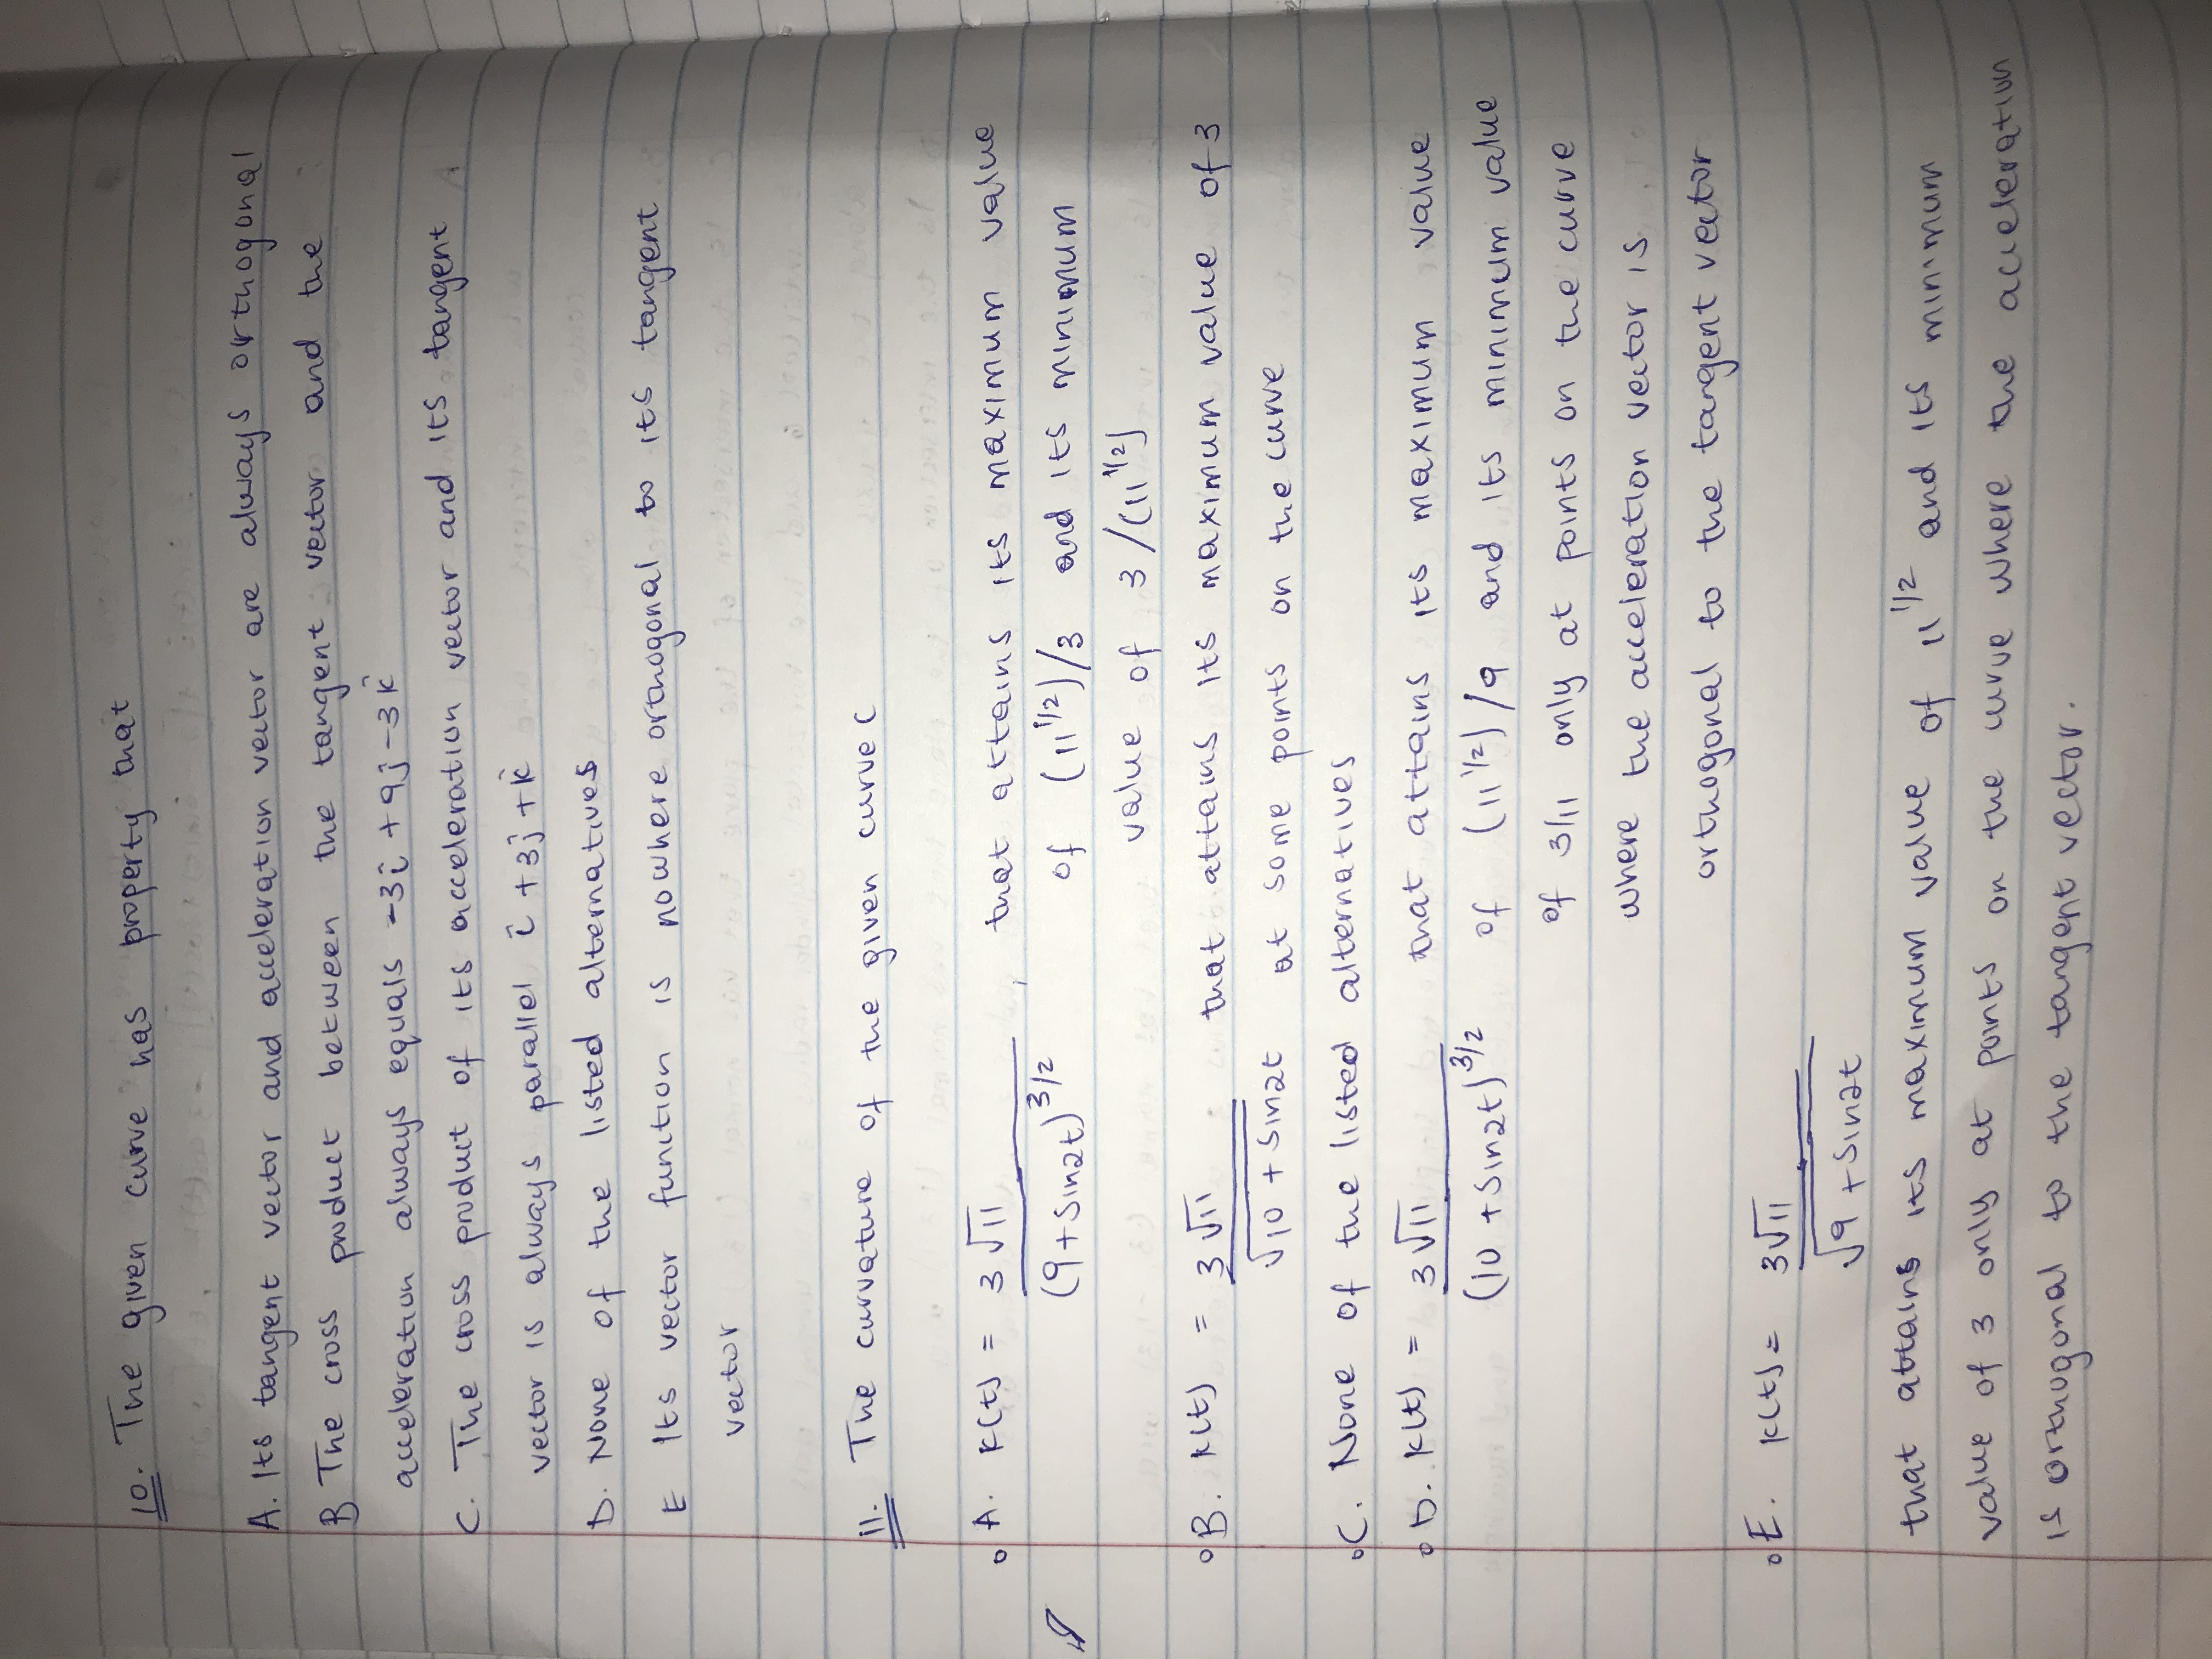 10. The given curve has property that
A. Its tangent vector and acceleration vector are always orthogonal
B The cross product between the tangent vector and the
acceleration always equals -3i + 9j - 3k
C. The cross product of its acceleration vector and its tangent
vector is always parallel i + 3j + k
D. None of the listed alternatives
E Its vector function is nowhere orthogonal to its tangent
vector
11. The curvature of the given curve C
A. K(t) = 3√11 / (9 + sin2t)^3/2 that attains its maximum value
of (11^1/2)/3 and its minimum
value of 3/(11^1/2)
B. K(t) = 3√11 / √10 + sin2t that attains its maximum value of 3
at some points on the curve
C. None of the listed alternatives
D. K(t) = 3√11 / (10 + sin2t)^3/2 that attains its maximum value
of (11^1/2)/9 and its minimum value
of 3/11 only at points on the curve
where the acceleration vector is
orthogonal to the tangent vector
E. K(t) = 3√11 / √9 + sin2t
that attains its maximum value of 11^1/2 and its minimum
value of 3 only at points on the curve where the acceleration
is orthogonal to the tangent vector.